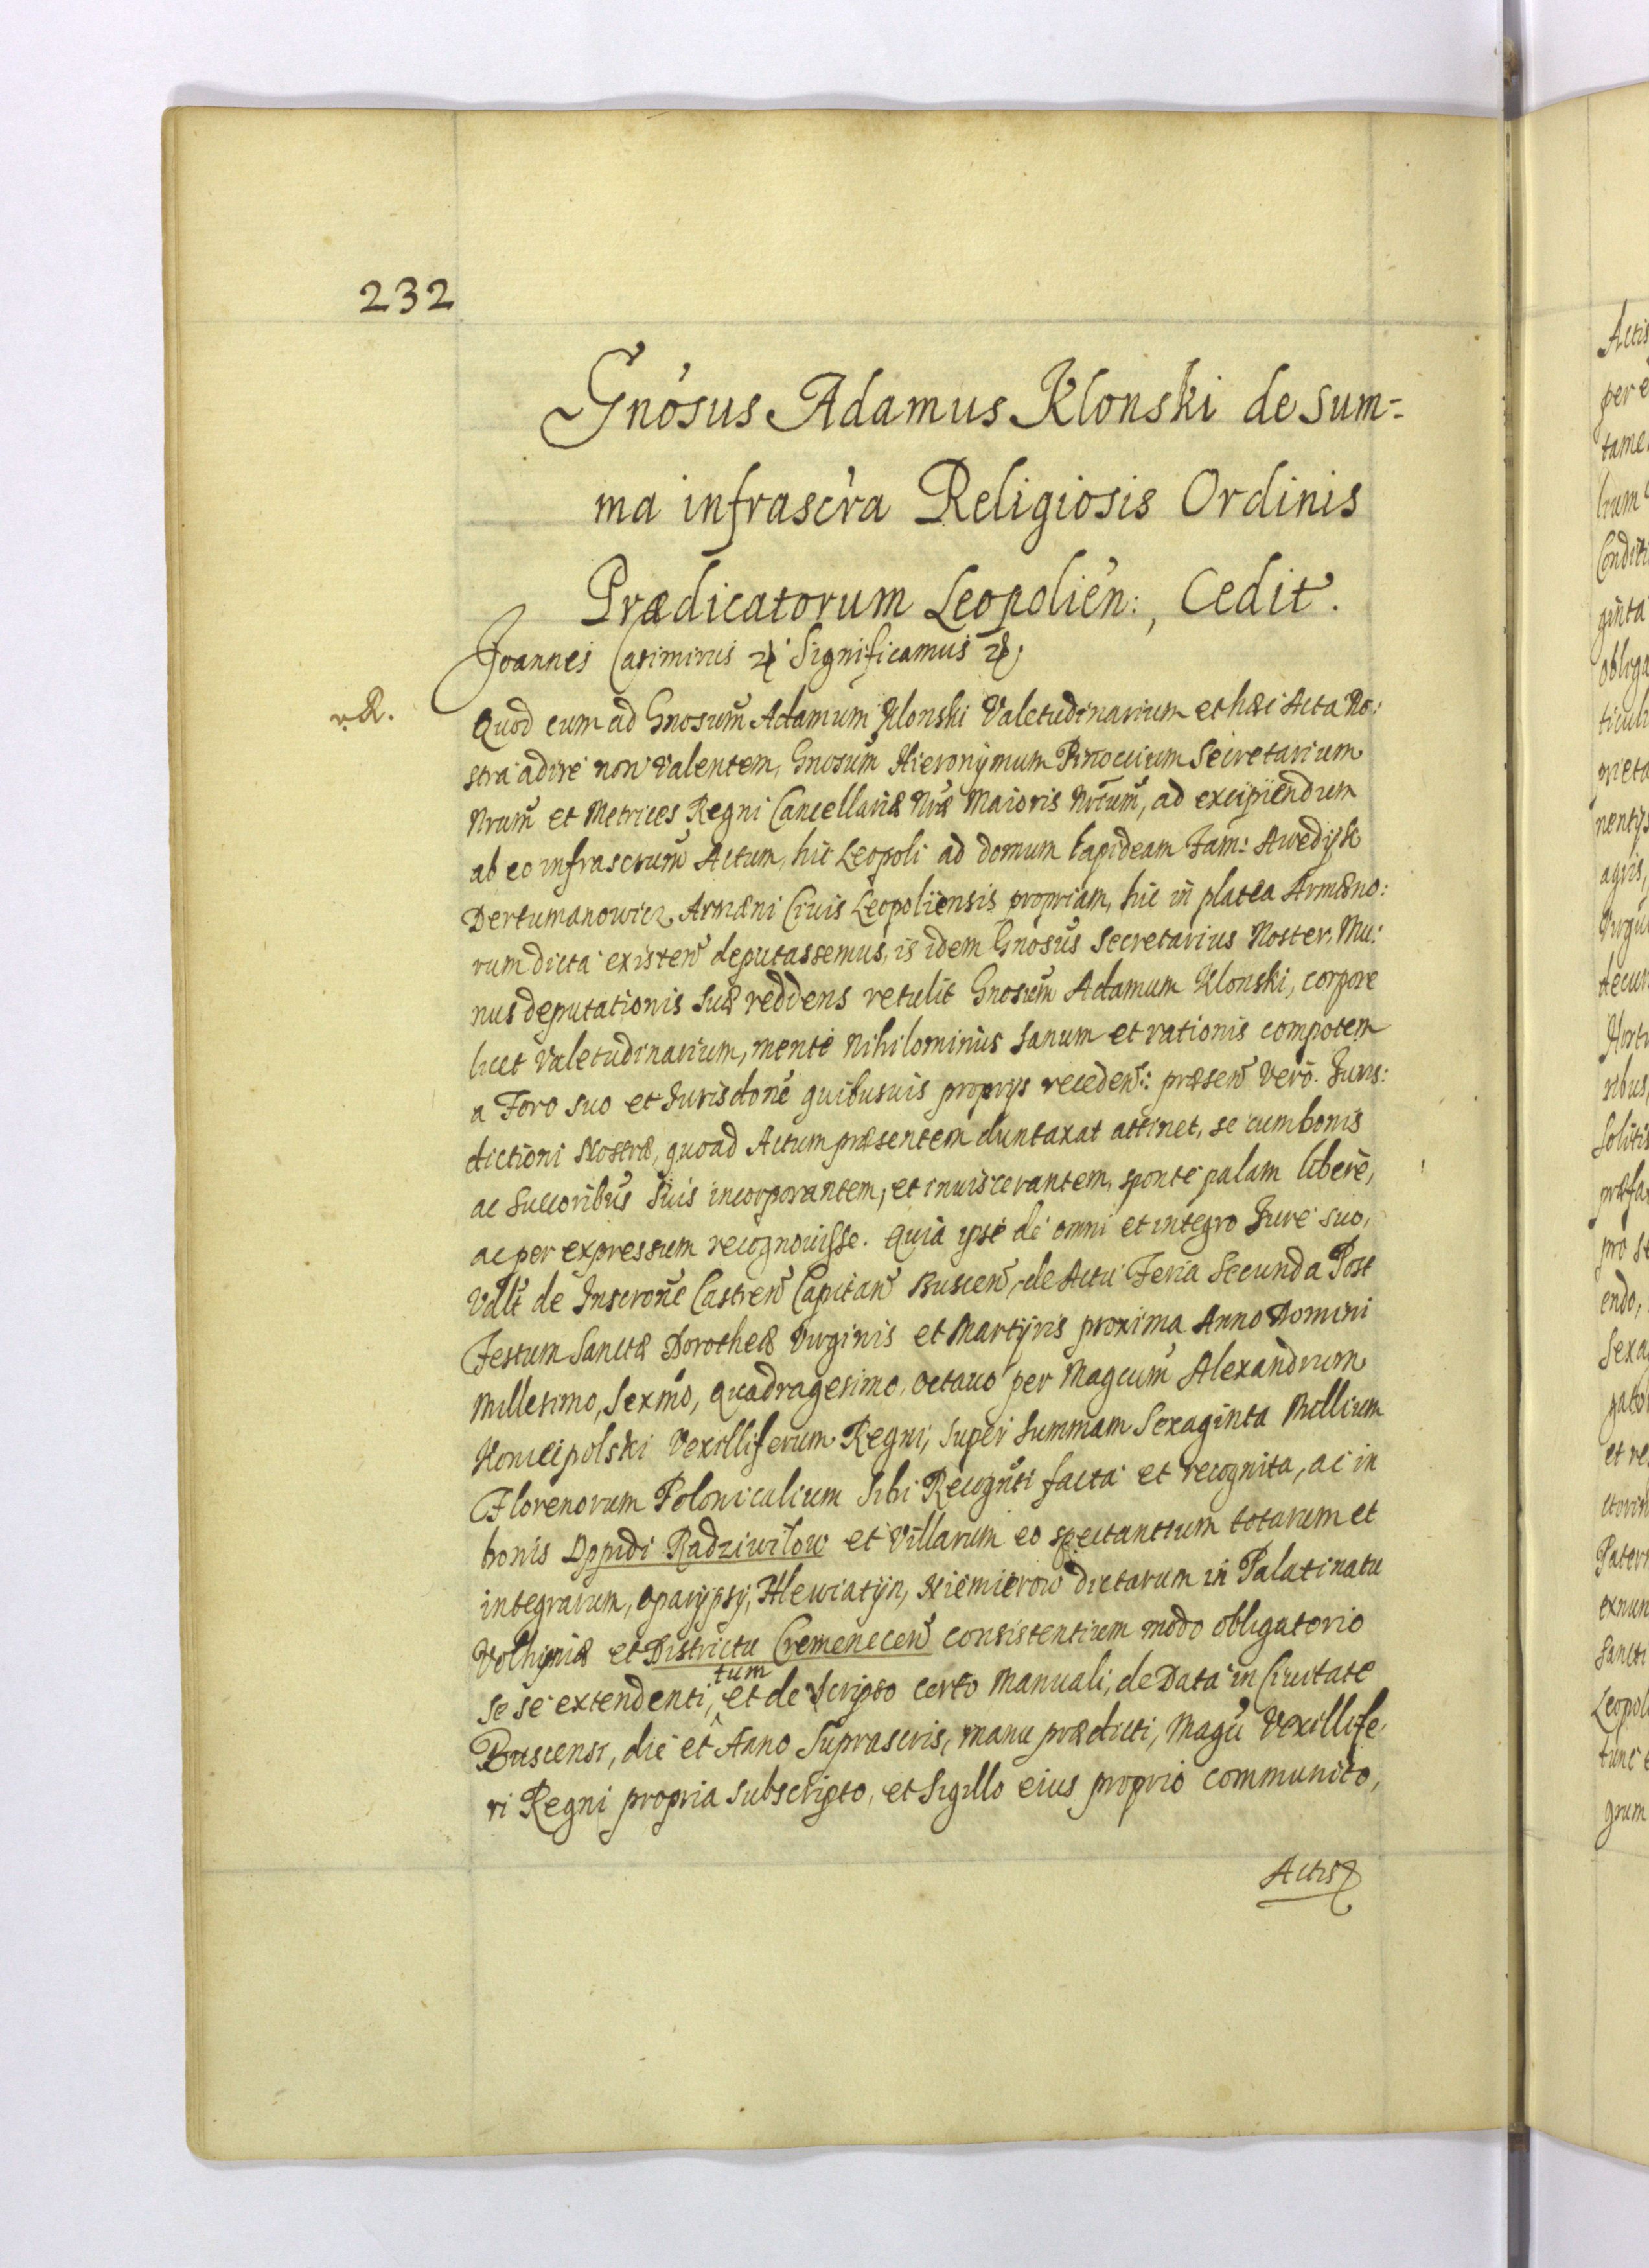 232
Gnosus Adamus Klonski de Sum=
ma infrascra Religiosis Ordinis
Prædicatorum Leopolien:, Cedit.
Joannes Casimirus Significamus
Quod cum ad Gnosum Adamum Klonski Valetudinarium et hæc Acta No:
stra adire non valentem, Gnosum Hieronÿmum Pinoccium Secretarium
Nrum et Metrices Regni Cancellariæ Nræ Maioris Nrium, ad excipiendum
ab eo infrascrum Actum, hic Leopoli ad domum lapideam Fam: Awedÿk
Dertumanowicz Armæni Civis Leopoliensis propriam, hic in platea Armæno:
rum dicta existen deputassemus, is idem Gnosus Secretarius Noster, Mu:
nus deputationis suæ reddens retulit Gnosum Adamum Klonski, corpore
licet Valetudinarium, mente nihilominus sanum et rationis compotem
a Foro suo et Jurisdone quibusuis proprys receden: præsen vero Juris:
dictioni Nostræ, quoad Actum præsentem duntaxat attinet, se cum bonis
ac succoribus suis incorporantem, et inuiscerantem, sponte palam libere,
ac per expressum recognouisse. Quia ipse de omni et integro Jure suo,
Vdlt de Inscrone Castren Capitan Buscen, de Actu Feria Secunda Post
Festum Sanctæ Dorotheæ Virginis et Martÿris proxima Anno Domini
Millesimo, Sexmo, Quadragesimo, octauo per Magcum Alexandrum
Koniecpolski Vexilliferum Regni, super Summam Sexaginta Millium
Florenorum Polonicalium sibi Recognti facta et recognita, ac in
bonis Oppidi Radziwilow et Villarum eo spectantium totarum et
integrarum, Oparÿpsÿ, Hlewiatÿn, Niemierow dictarum in Palatinatu
Volhÿniæ et Districtu Cremenecen consistentium modo obligatorio
se se extendenti, et de Scripto certo Manuali, de Data in Ciuitate
tum
Buscensi, die et Anno Suprascris, manu prædicti, Magci Vexillife:
ri Regni propria subscripto, et Sigillo eius proprio communito,
Actis